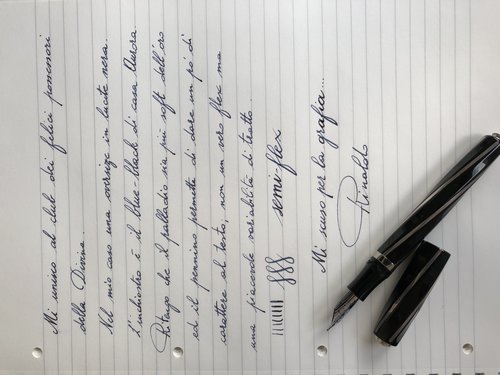 Mi unisco al club dei felici possessori
della Divina.
Nel mio caso una oversize in lucite nera.
L'inchiostro è il blue-black di casa Aurora.
Ritengo che il palladio sia più soft dell'oro
ed il pennino permette di dare un pò di
carattere al testo, non un vero flex ma
una piacevole variabilità di tratto.
semi-flex
Mi scuso per la grafia...
Rinaldo